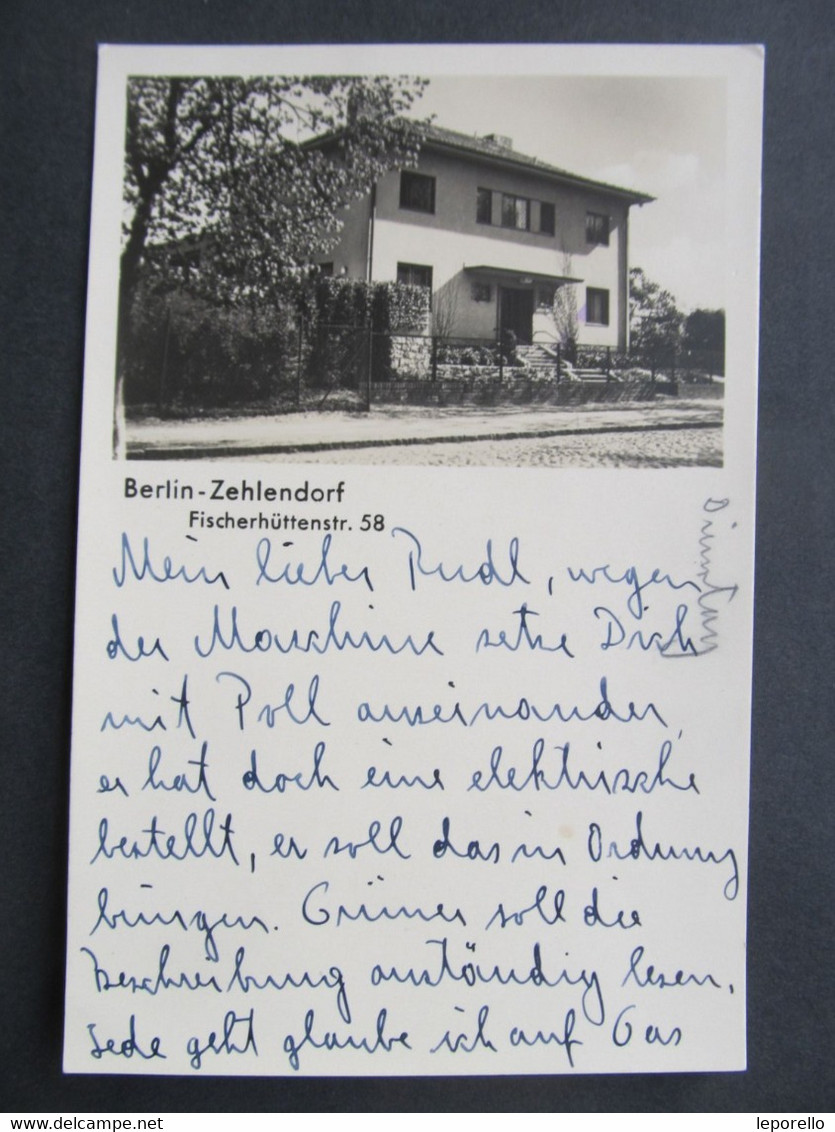 Berlin-Zehlendorf
Fischerhüttenstr. 58
Mein lieber Rudl, wegen
der Maschine setze Dich
mit Poll auseinander,
er hat doch eine elektrische
bestellt, er soll das in Ordnung
bringen. Grüner soll die
Beschreibung anständig lesen.
Jede geht glaube ich auf Gas
leporello
www.delcampe.net